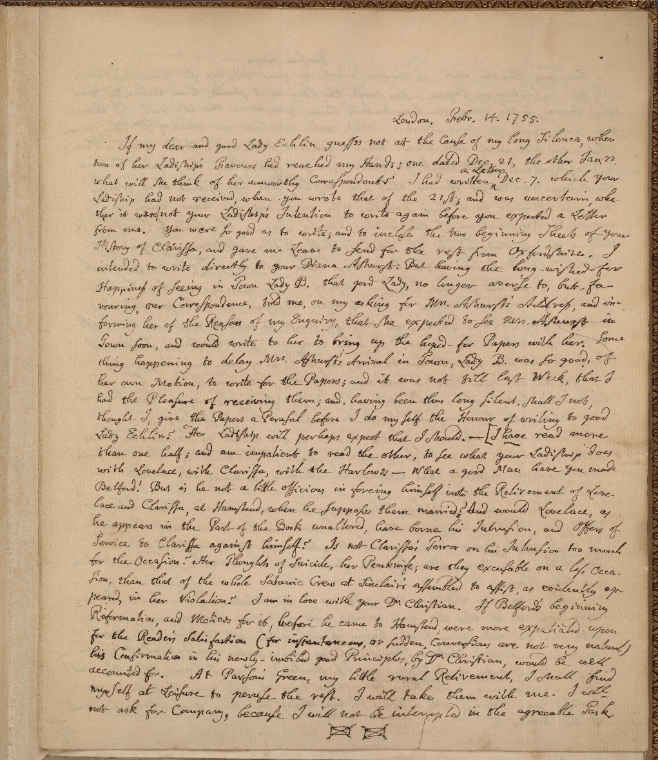 London, Febr. 14. 1755.
If my dear and good Lady Echlin guesses not at the Cause of my long Silence, when
two of her Ladiship's Favours had reached my Hands; one dated Dec. 21, the other Jan. 22
what will she think of her unworthy Correspondent? I had written a Letter Dec. 7. which your
Ladiship had not received, when you wrote that of the 21st; and was uncertain, whe-
ther it was not your Ladiship's Intention to write again before you expected a Letter
from me. You were so good as to write; and to inclose the two beginning Sheets of your
History of Clarissa, and gave me Leave to send for the rest from Oxfordshire. I
intended to write directly to your Diana Ashurst: But having the long-wished-for
Happiness of seeing in Town Lady B. that good Lady, no longer averse to, but fa-
vouring, our Correspondence, told me, on my asking for Mrs. Ashurst's Address, and in-
forming her of the Reason of my Enquiry, that she expected to see Mrs. Ashurst in
Town soon, and would write to her to bring up the hoped-for Papers with her. Some-
thing happening to delay Mrs. Ashurst's Arrival in Town, Lady B. was so good, of
her own Motion, to write for the Papers; and it was not till last Week, that I
had the Pleasure of receiving them; and, having been thus long silent, shall I not,
thought I, give the Papers a Perusal before I do my self the Honour of writing to good
Lady Echlin? Her Ladiship will perhaps expect that I should. — [I have read more
than one half; and am impatient to read the other, to see what your Ladiship does
with Lovelace, with Clarissa, with the Harlowes — What a good Man have you made
Belford! But is he not a little officious in forcing himself into the Retirement of Love-
lace and Clarissa, at Hamstead, when he supposes them married? And would Lovelace, as
he appears in the Part of the Book unaltered, have borne his Intrusion, and Offers of
Service to Clarissa against himself? Is not Clarissa's Terror on his Intrusion too much
for the Occasion? Her Thoughts of Suicide, her Penknife; are they excusable on a less Occa-
sion, than that of the whole Satanic Crew at Sinclair's assembled to assist, as evidently ap-
peared, in her Violation? I am in love with your Dr. Christian. If Belford's beginning
Reformation, and Motives for it, before he came to Hamstead, were more expatiated upon
for the Reader's Satisfaction (for instantaneous, or sudden, Conversions are not very natural)
his Confirmation in his newly-imbibed good Principles, by Dr. Christian, would be well
accounted for. At Parson's Green, my little rural Retirement, I shall find
myself at Leisure to peruse the rest. I will take them with me. I will
not ask for Company, because I will not be interrupted in the agreeable Task